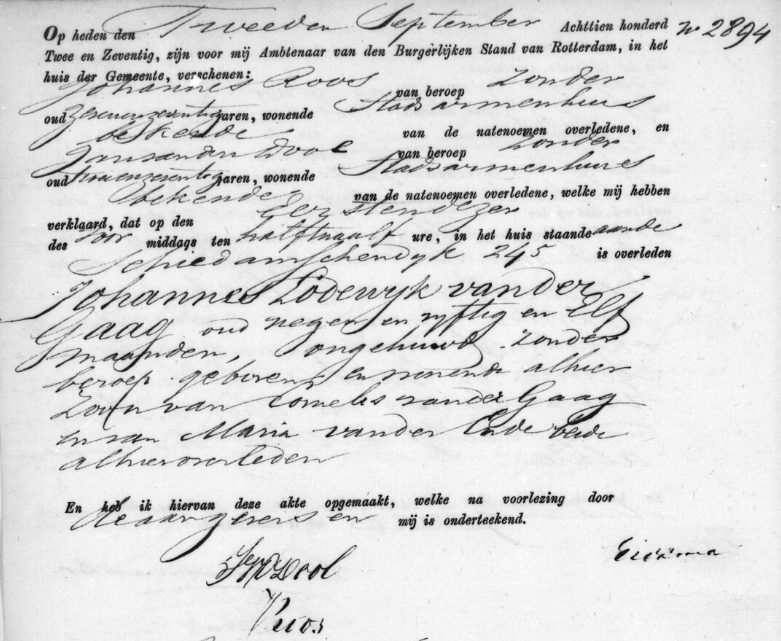 Op heden den Tweeden September Achttien honderd No 2894
Twee en Zeventig, zijn voor mij Ambtenaar van den Burgerlijken Stand van Rotterdam, in het
huis der Gemeente, verschenen:
Johannes Roos van beroep zonder
oud zevenenzeventig jaren, wonende Stadsarmenhuis
bekende van de natenoemen overledene, en
Jan van den Dool van beroep zonder
oud jaren, wonende Stadsarmenhuis
bekende van de natenoemen overledene, welke mij hebben
verklaard, dat op den Eersten dezer
des voor middags ten half twaalf ure, in het huis staande aan de
Schiedamschendyk 245 is overleden
Johannes Lodewyk van der
Gaag oud negen en vyftig en Elf
maanden, ongehuwd zonder
beroep geboren en wonende alhier
Zoon van Cornelis van der Gaag
en van Maria van der Ende beide
alhier overleden
En heb ik hiervan deze akte opgemaakt, welke na voorlezing door
de aangevers en mij is onderteekend.
Dool
Roos